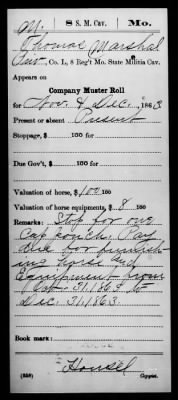 M. 8 S. M. Cav. Mo.
Thomas Marshal
Pvt., Co. L, 8 Reg't Mo. State Militia Cav.
Appears on
Company Muster Roll
for Nov. & Dec., 1863
Present or absent Present
Stoppage, $ 100 for
Due Gov't, $ 100 for
Valuation of horse, $ 100
Valuation of horse equipments, $ 8 100
Remarks: Stop for one
Cap pouch, Pay
due for furnish
ing horse and
Equipment from
Oct. 31, 1863 to
Dec. 31, 1863.
Book mark:
Housel
(858) Copyist.